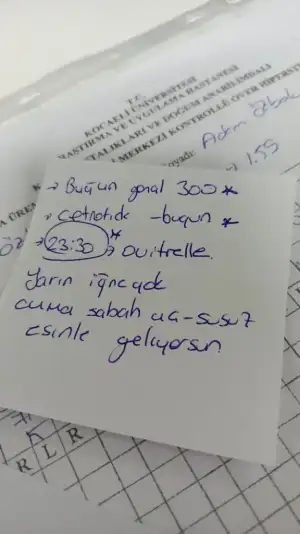 T.C.
KOCAELİ ÜNİVERSİTESİ
ARAŞTIRMA VE UYGULAMA HASTANESİ
HASTALIKLARI VE DOĞUM ANABİLİMDALI
MERKEZİ KONTROLLÜ OVER HİPERSTİ
oyadı: Adem
1.55
→ Bugün gonal 300 *
• cetrotide - bugün *
→ 23:30 * → ovitrelle.
Yarın iğne yok
cuma sabah aç-susuz
eşinle geliyorsun
R L R